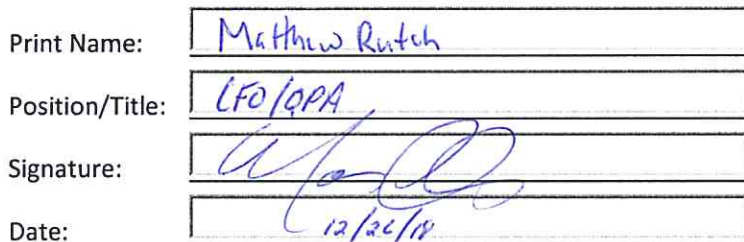 Print Name: Matthew Rutch
Position/Title: CFO/QPA
Signature:
Date: 12/26/18